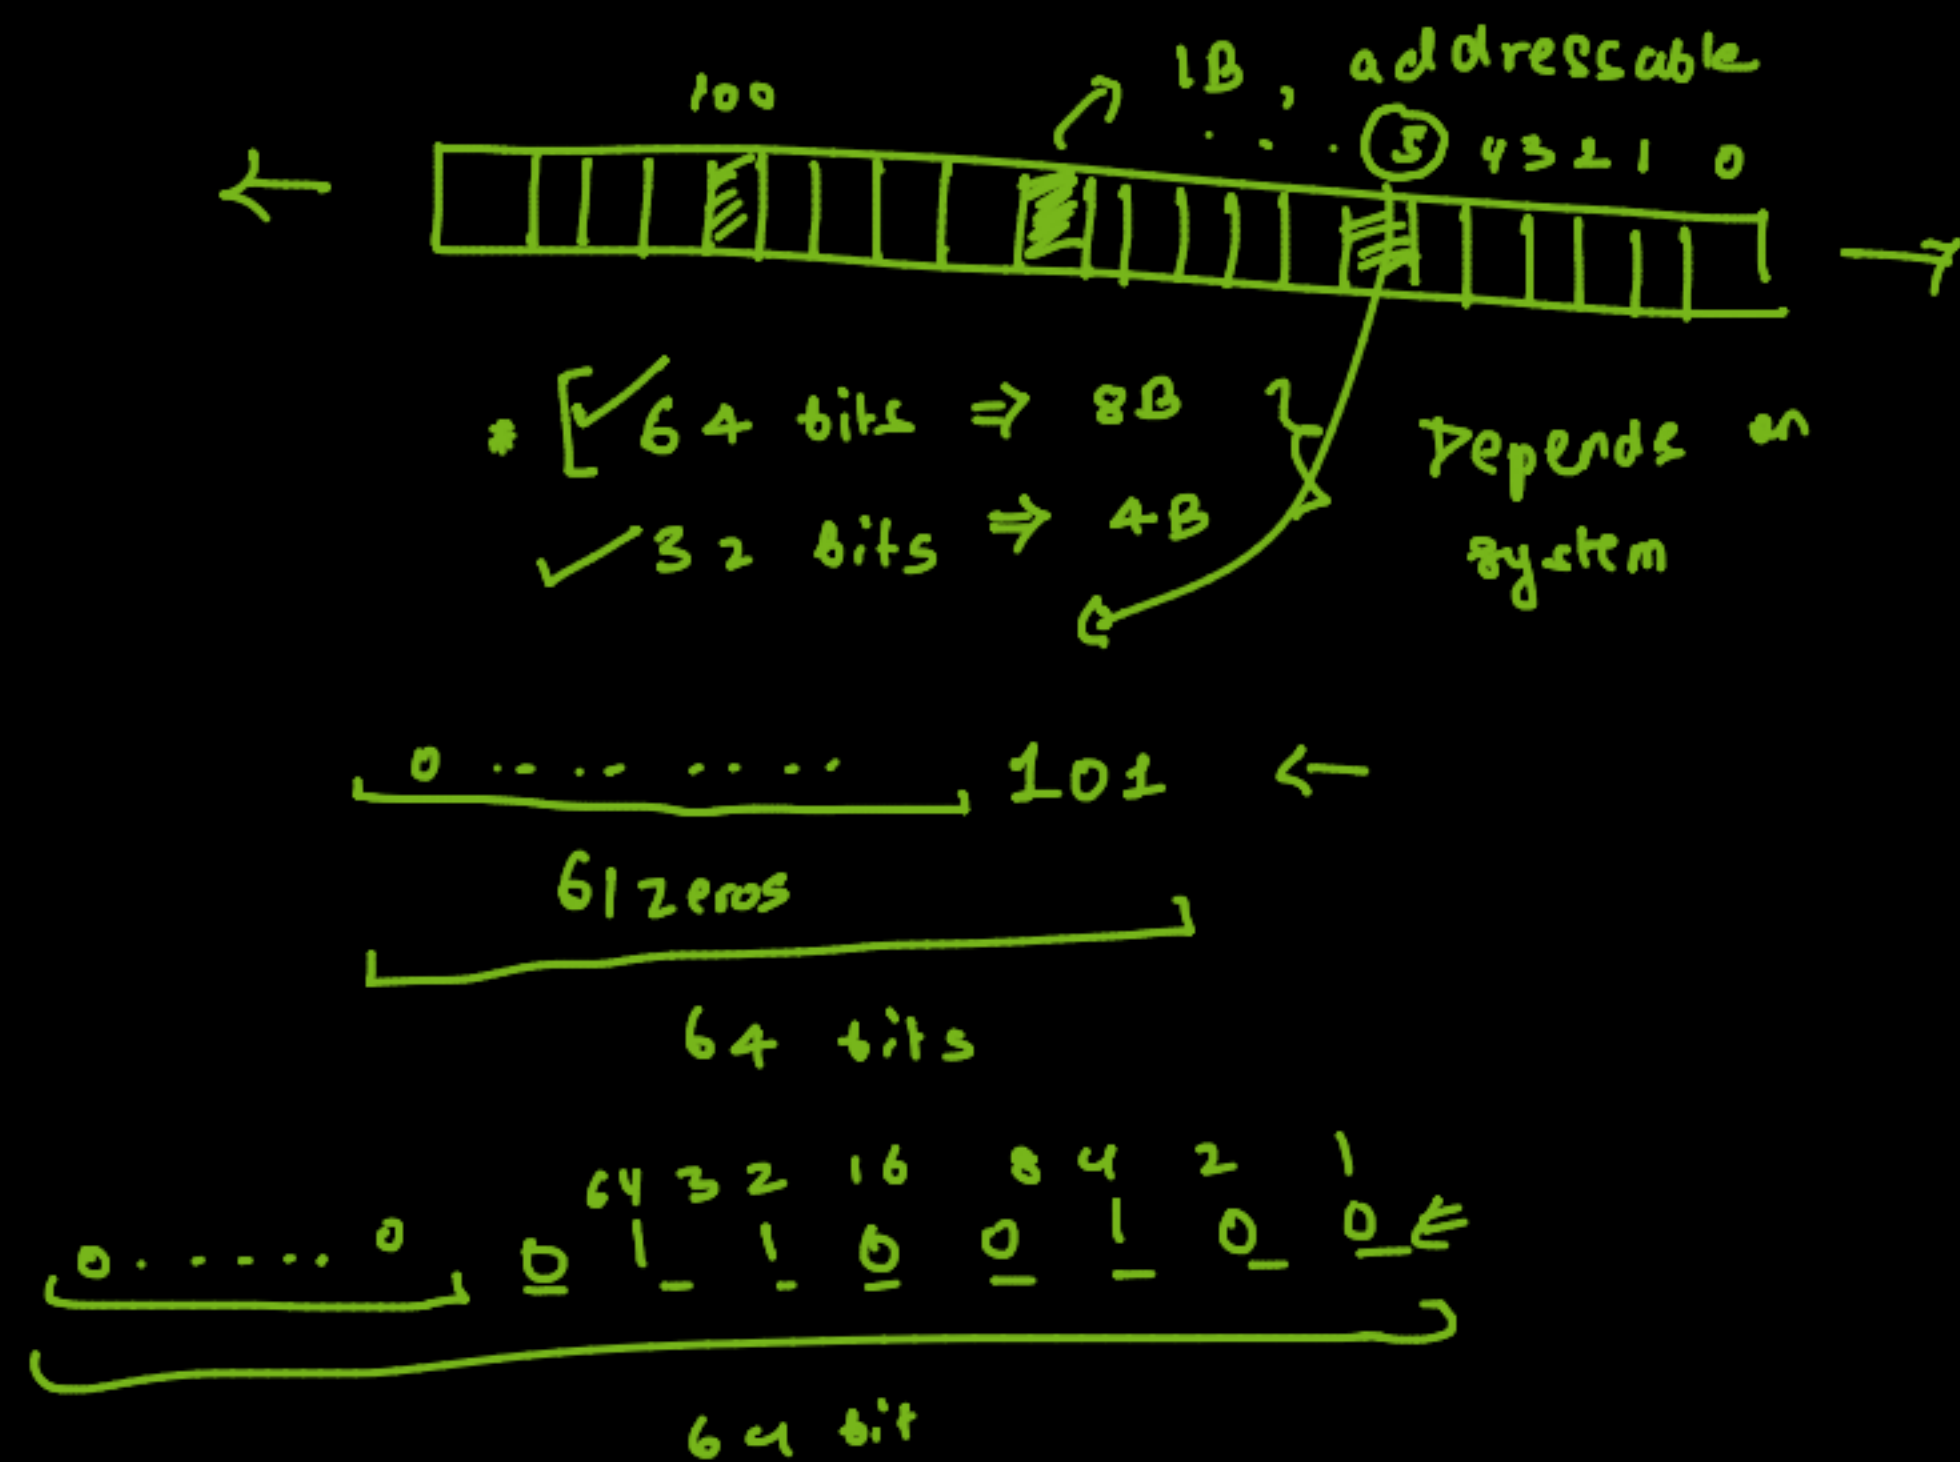 100
1B, addressable
. . . 5 4 3 2 1 0
* [✓ 64 bits ⇒ 8B
✓ 32 bits ⇒ 4B
Depends on
system
0 ........ 101 ←
61 zeros
64 bits
64 32 16 8 4 2 1
0 ..... 0 0 1 1 0 0 1 0 0
64 bit